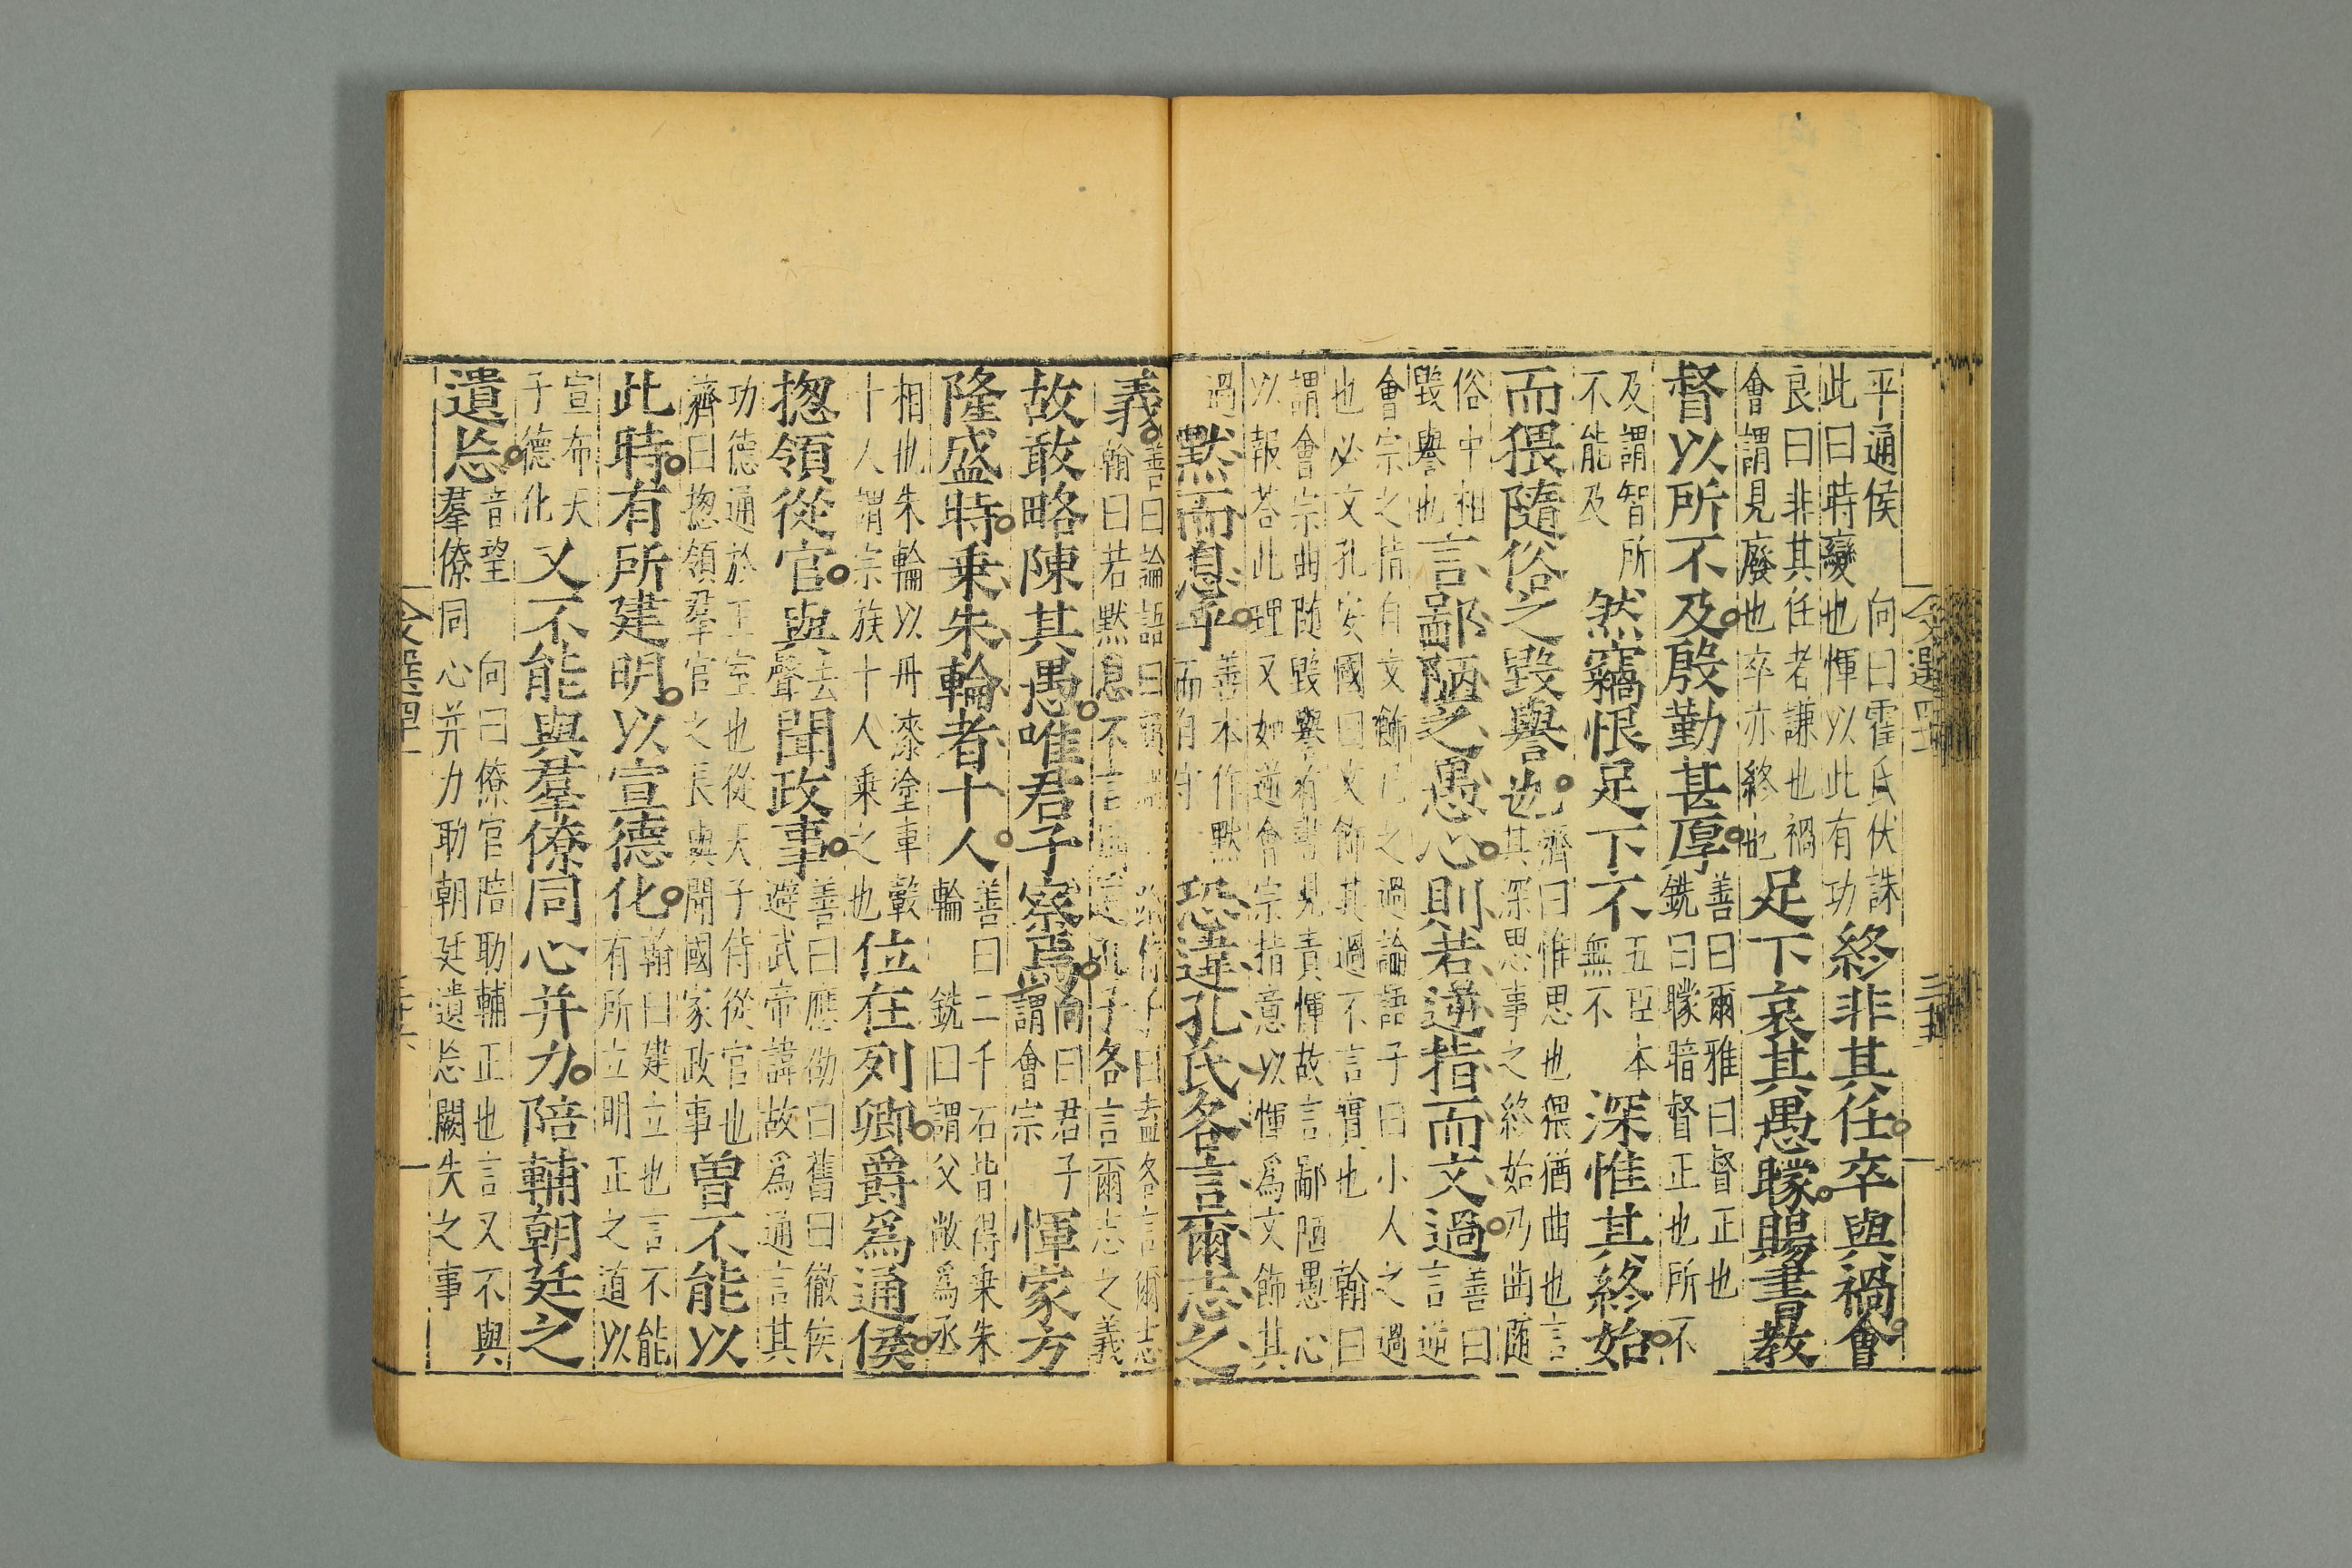 平通侯　向曰霍氏伏誅
此曰時變也惲以此有功
終非其任卒與禍會
良曰非其任者謙也禍
會謂見廢也卒亦終也
足下哀其愚矇賜書教
督以所不及殷勤甚厚
善曰爾雅曰督正也
銑曰矇暗督正也所不
及謂智所
不能及
然竊恨足下不
五臣本
無不
深惟其終始
而猥隨俗之毀譽也
濟曰惟思也猥猶曲也言
其深思事之終始乃曲隨
俗中相
毀譽也
言鄙陋之愚心則若逆指而文過
善曰
言逆
會宗之指自文飾己之過論語子曰小人之過
也必文孔安國曰文飾其過不言實也　翰曰
謂會宗曲随毀譽有書見責惲故言鄙陋愚心
以報荅此理又如逆會宗指意以惲爲文飾其
過
默而息乎
善本作默
而自守
恐違孔氏各言爾志之
義
善曰論語曰
子曰盍各言爾志
翰曰若默息不言
孔子各言爾志之義
故敢略陳其愚唯君子察焉
向曰君子
謂會宗
惲家方
隆盛時乗朱輪者十人
善曰二千石皆得乗朱
輪　銑曰謂父敞爲丞
相也朱輪以丹漆塗車轂
十人謂宗族十人乗之也
位在列卿爵爲通侯
揔領從官與
去
聲
聞政事
善曰應劭曰舊曰徹侯
避武帝諱故爲通言其
功德通於王室也從天子侍從官也
濟曰揔領羣官之長與聞國家政事
曽不能以
此時有所建明以宣德化
翰曰建立也言不能
有所立明正之道以
宣布天
子德化
又不能與羣僚同心并力陪輔朝廷之
遺忘
音望　向曰僚官陪助輔正也言又不與
羣僚同心并力助朝廷遺忘闕失之事